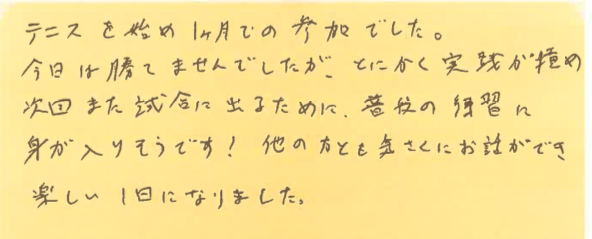 テニスを始め1ヶ月での参加でした。
今日は勝てませんでしたが、とにかく実践が積め
次回また試合に出るために、普段の練習に
身が入りそうです！他の方とも気さくにお話ができ
楽しい1日になりました。